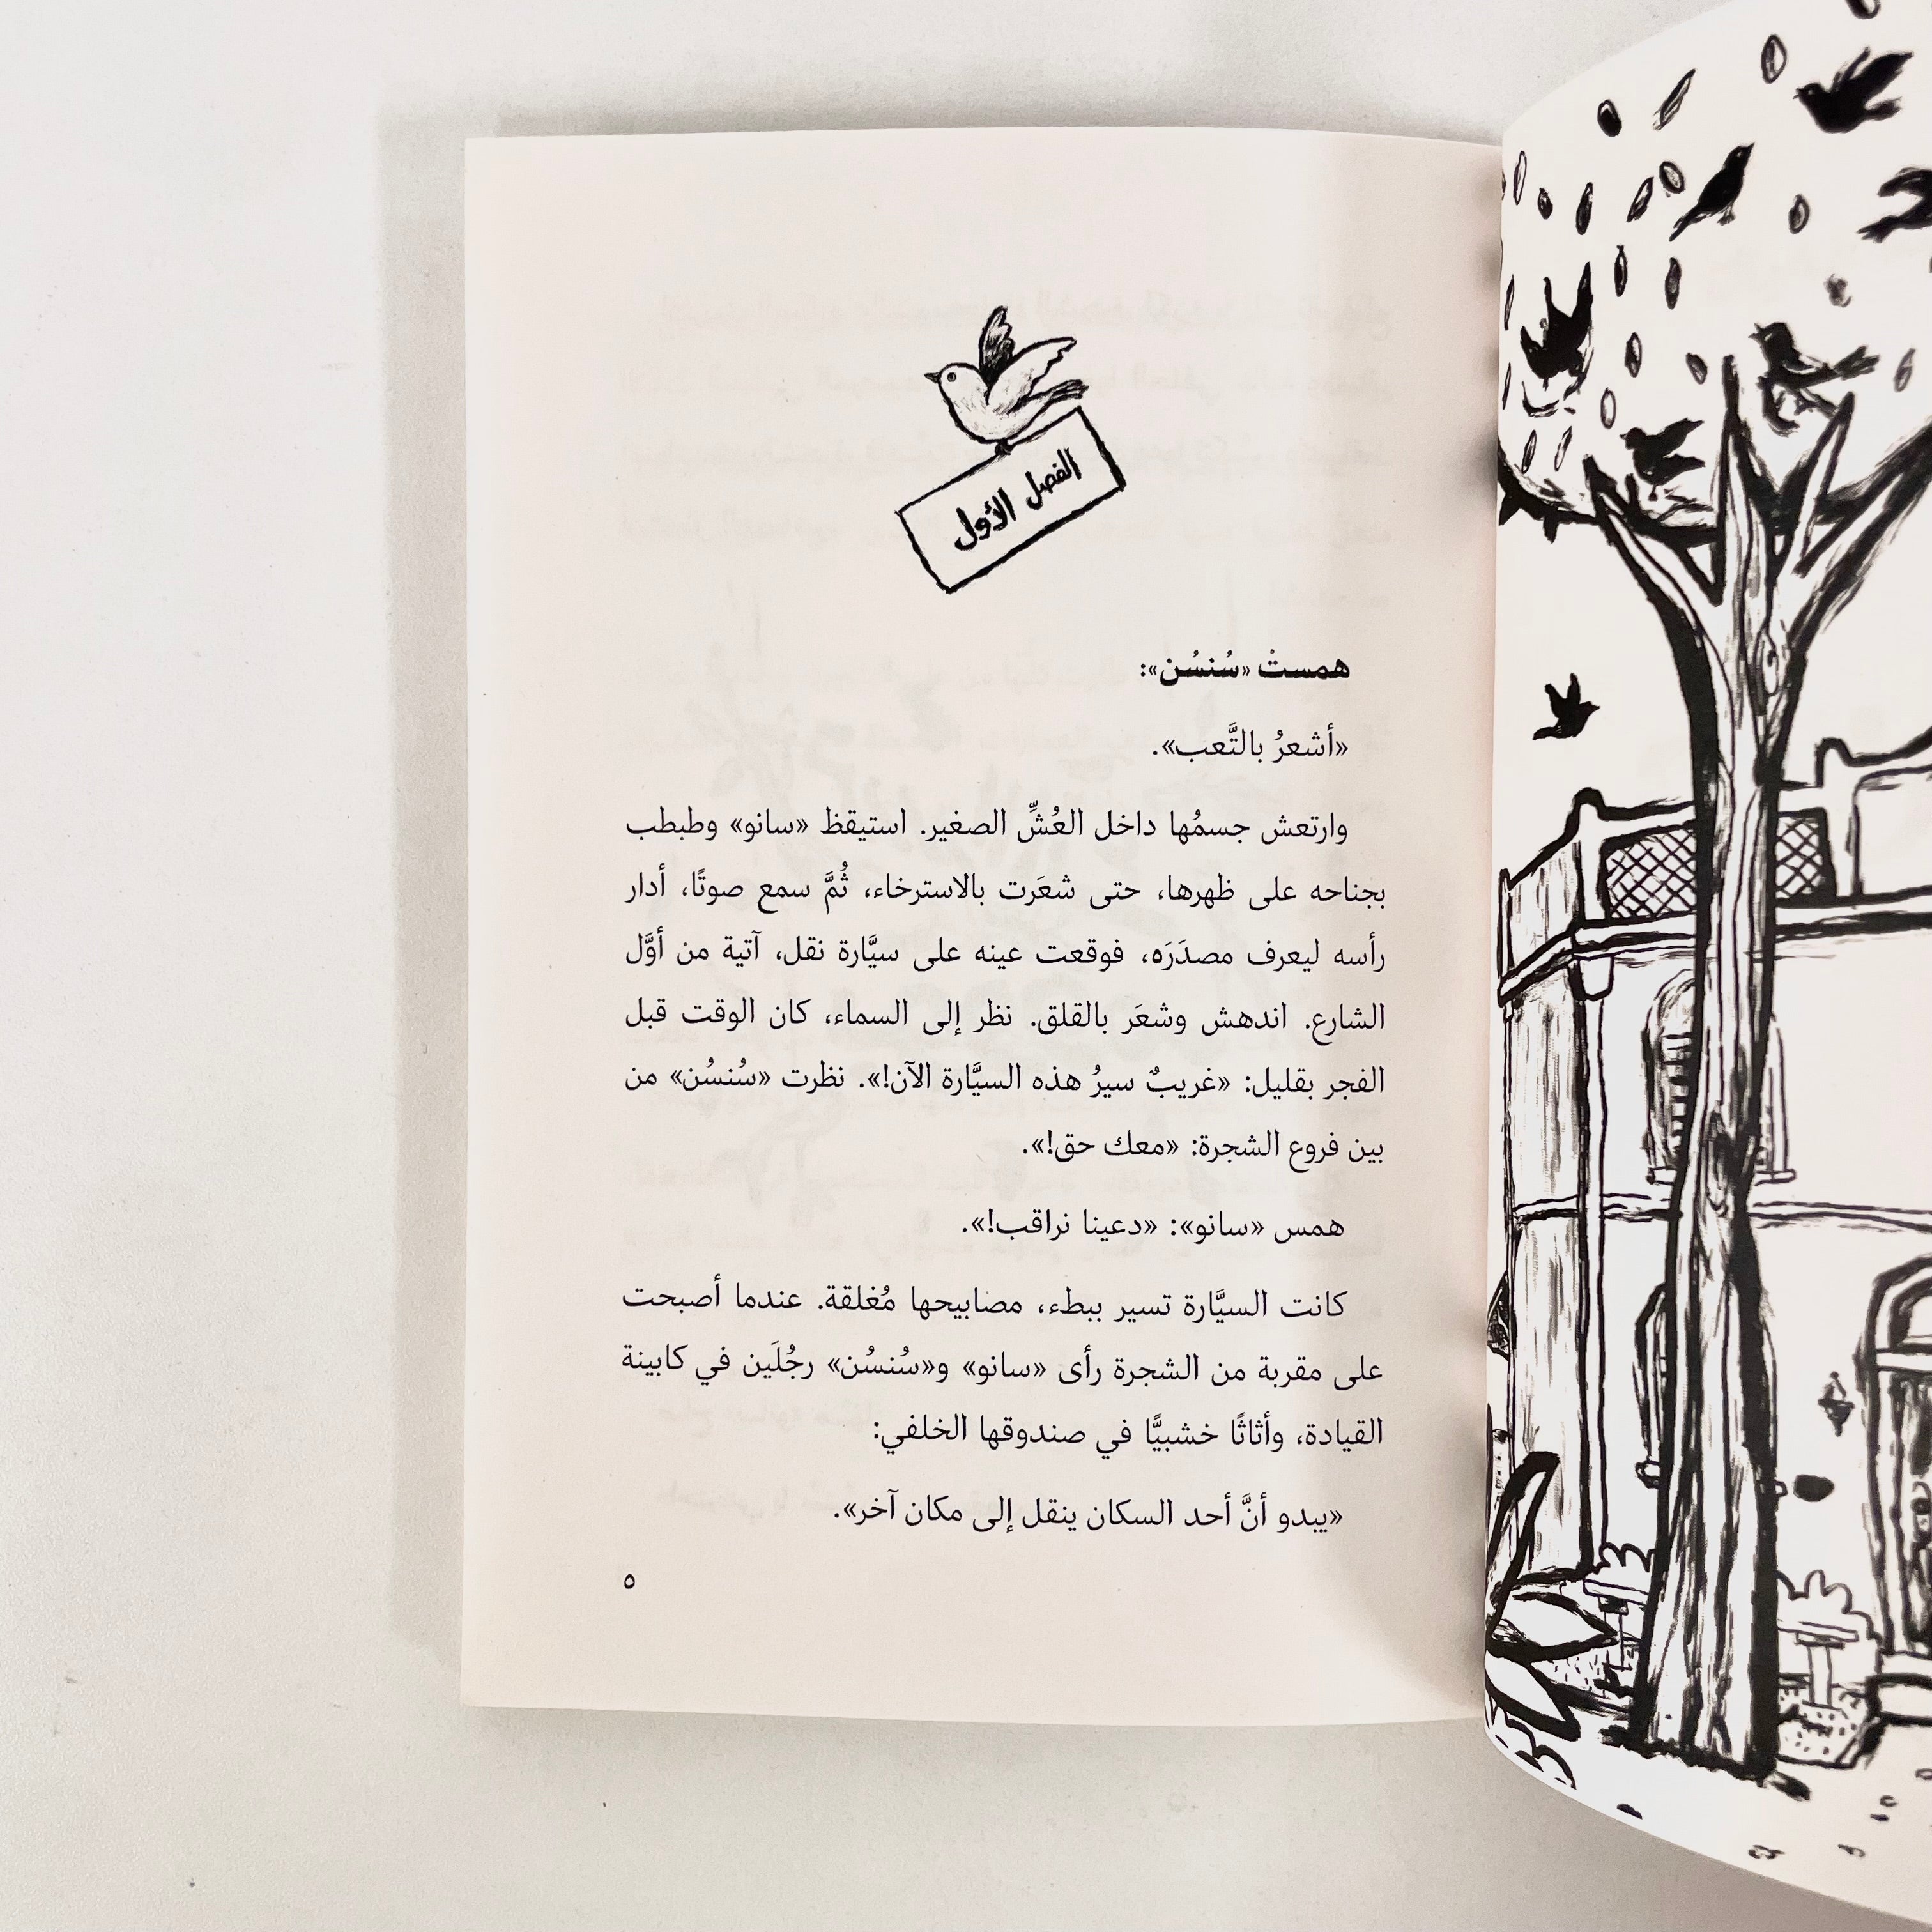 الفصل الأول
همستْ «سُنسُن»:
«أشعرُ بالتَّعب».
وارتعش جسمُها داخل العُشِّ الصغير. استيقظ «سانو» وطبطب
بجناحه على ظهرها، حتى شعَرت بالاسترخاء، ثُمَّ سمع صوتًا، أدار
رأسه ليعرف مصدَرَه، فوقعت عينه على سيَّارة نقل، آتية من أوَّل
الشارع. اندهش وشعَر بالقلق. نظر إلى السماء، كان الوقت قبل
الفجر بقليل: «غريبٌ سيرُ هذه السيَّارة الآن!». نظرت «سُنسُن» من
بين فروع الشجرة: «معك حق!».
همس «سانو»: «دعينا نراقب!».
كانت السيَّارة تسير ببطء، مصابيحها مُغلقة. عندما أصبحت
على مقربة من الشجرة رأى «سانو» و«سُنسُن» رجُلَين في كابينة
القيادة، وأثاثًا خشبيًّا في صندوقها الخلفي:
«يبدو أنَّ أحد السكان ينقل إلى مكان آخر».
٥